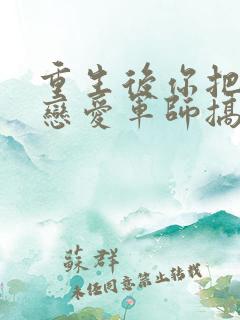 重生後你把
戀愛軍師搞
蘇群
未任同意禁止轉載